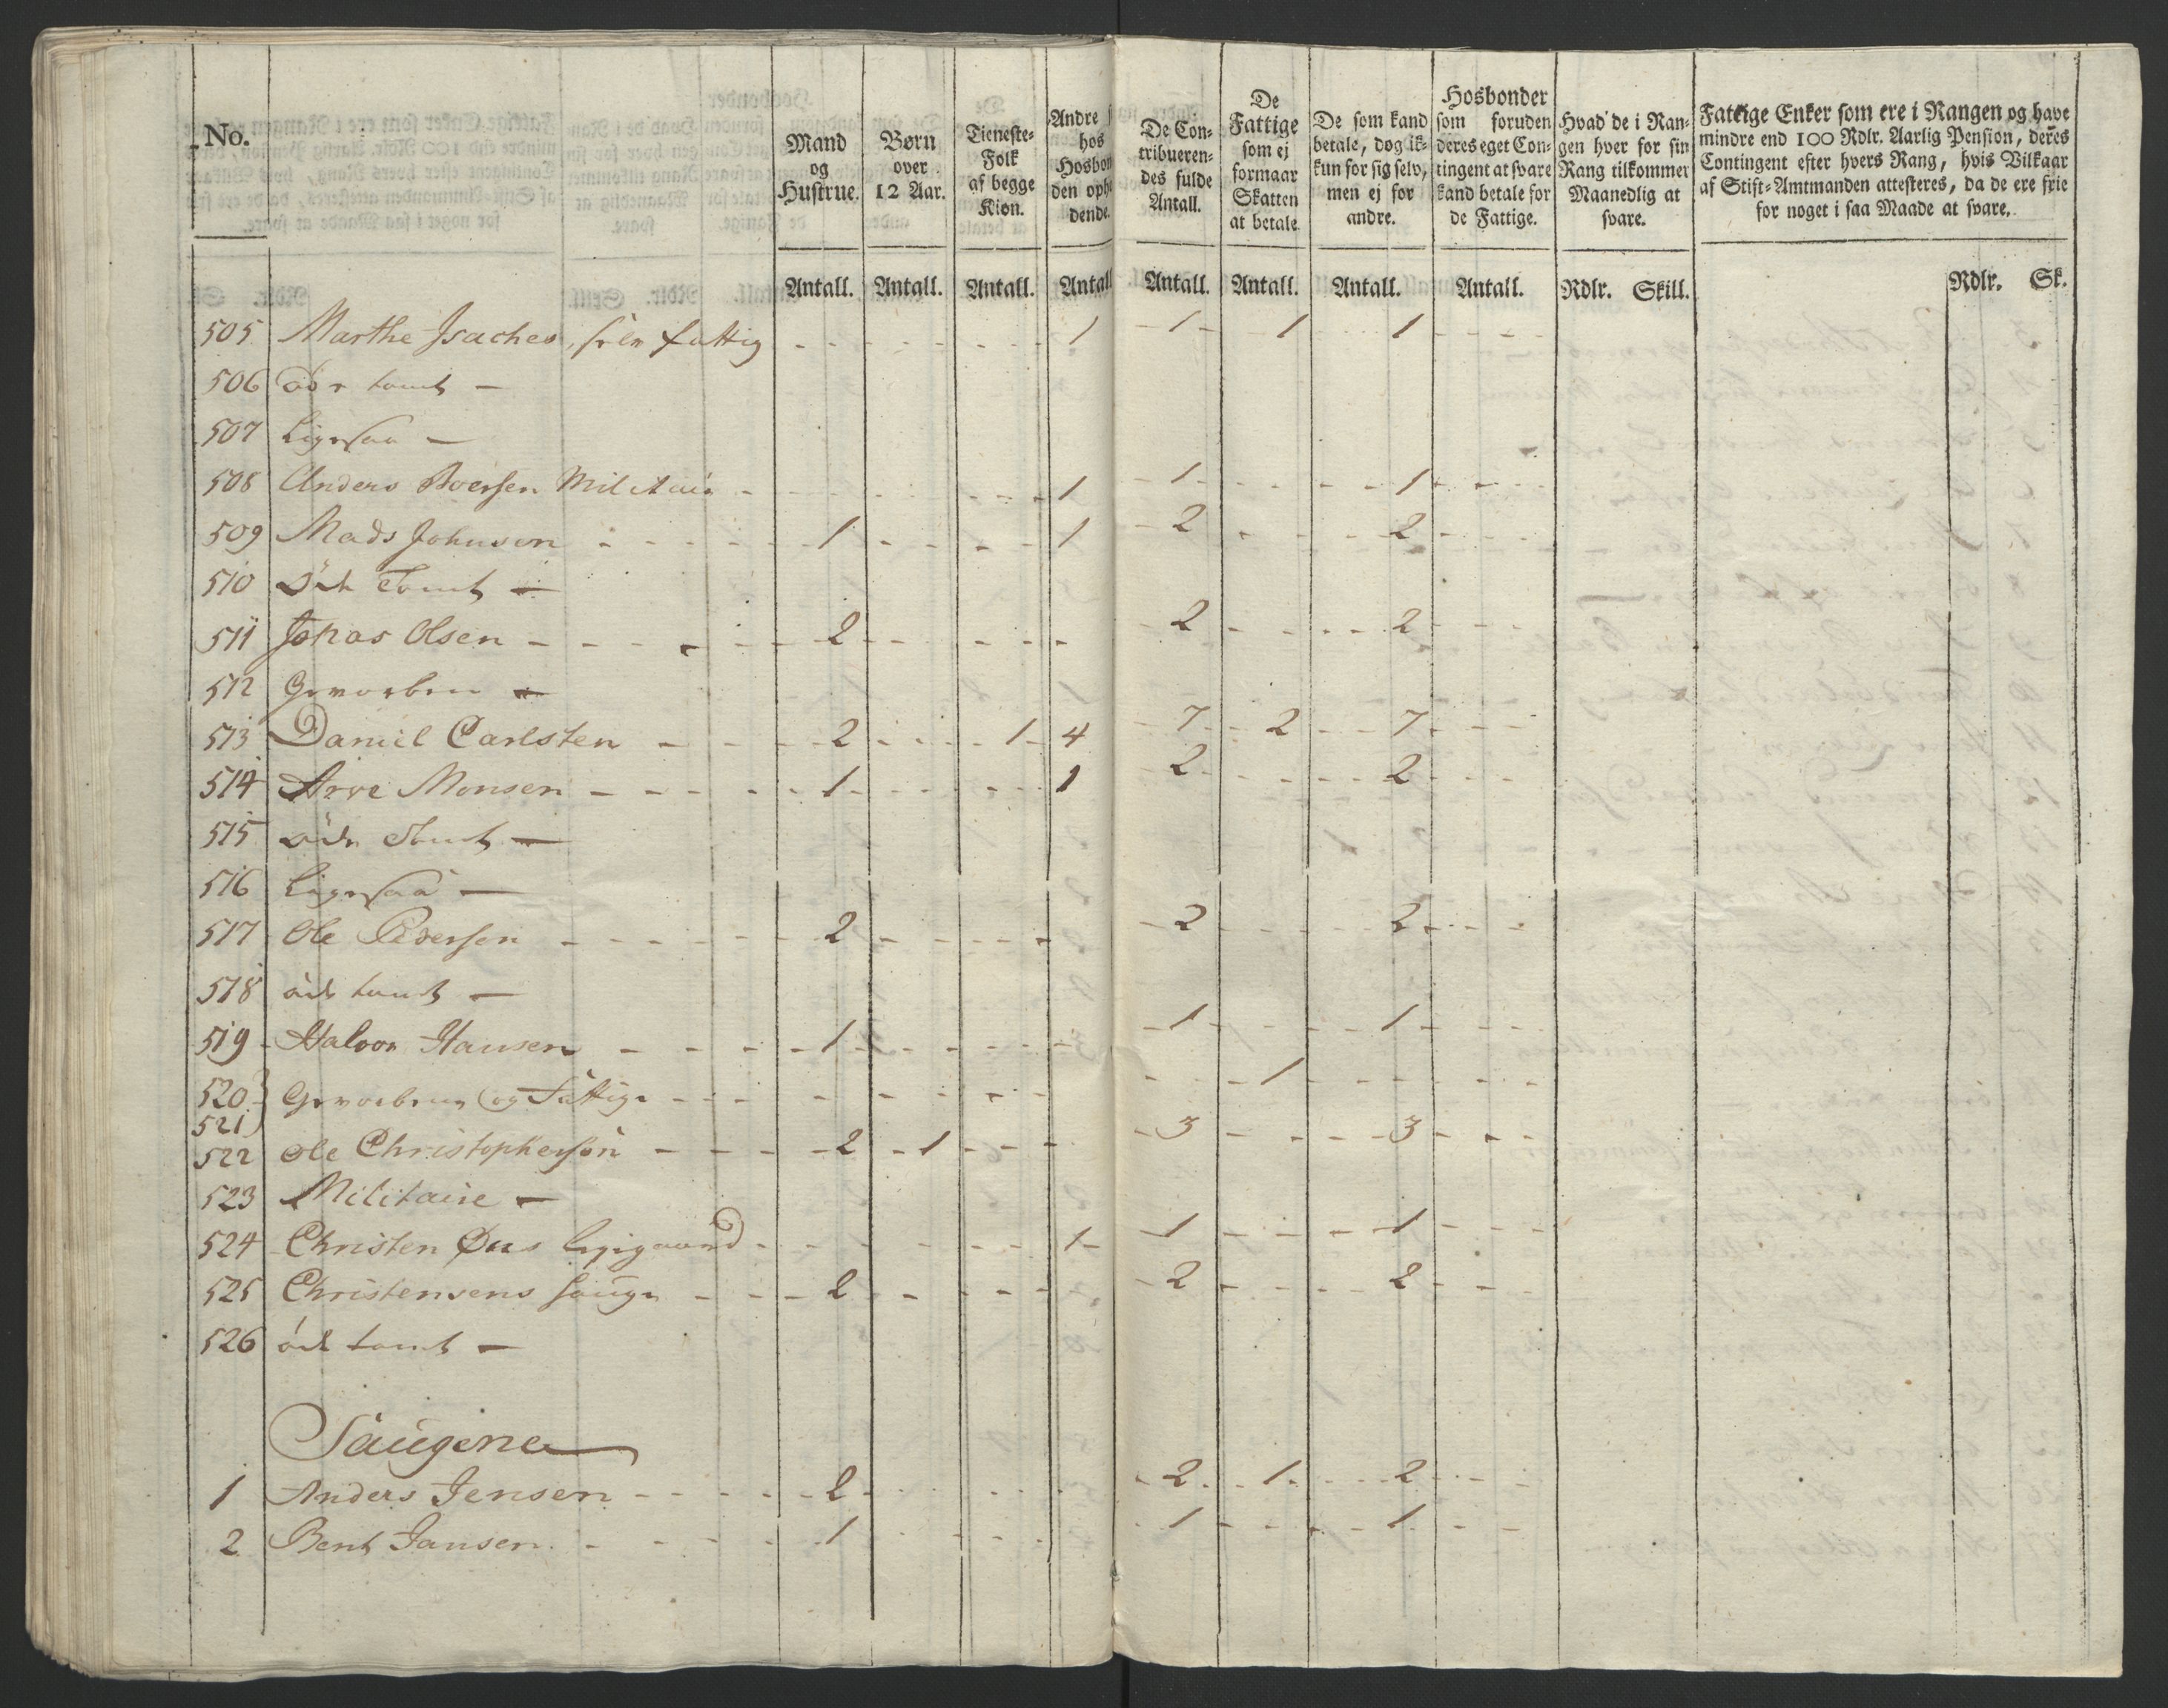 No.
Mand og Hustrue.
Børn over 12 Aar.
Tieneste-Folk af begge Kiøn.
Andre hos Hosbon den ophe dende.
De Con-tribueren-des fulde Antall.
De Fattige som ej formaar Skatten at betale.
De som kand betale, dog ik-kun for sig selv, men ej for andre.
Hosbonder som foruden deres eget Con-tingent at svare kand betale for de Fattige.
Hvad de i Ran-gen hver for sin Rang tilkommer Maanedlig at svare.
Fattige Enker som ere i Rangen og have mindre end 100 Rdlr. Aarlig Pension, deres Contingent efter hvers Rang, hvis Vilkaar af Stift-Amtmanden attesteres, da de ere frie for noget i saa Maade at svare.
Antall. Antall. Antall. Antall Antall. Antall. Antall. Antall. Rdlr. Skill. Rdlr. Sk.
505 Marthe Isaches, fattig 1 1 1 1
506 tomt
507 Ligesaa
508 Anders Militair 1 1 1
509 Mads Johnsen 1 1 2 2
510 Öde Tomt
511 Jonas Olsen 2 2 2
512 Gevorben
513 Daniel Carlsten 2 1 4 7 2 7
514 Arve Monsen 1 1 2 2
515 öde Tomt
516 Ligesaa
517 Ole Pedersen 2 2 2
518 öde tomt
519 Halvor Hansen 1 1 1
520
521 Gevorbene og Fattige 1
522 Ole Christophersen 2 1 3 3
523 Militaire
524 Christen 1 1 1
525 Christensens 2 2 2
526 öde tomt
Saugene
1 Anders Jensen 2 2 1 2
2 Bent Jansen 1 1 1